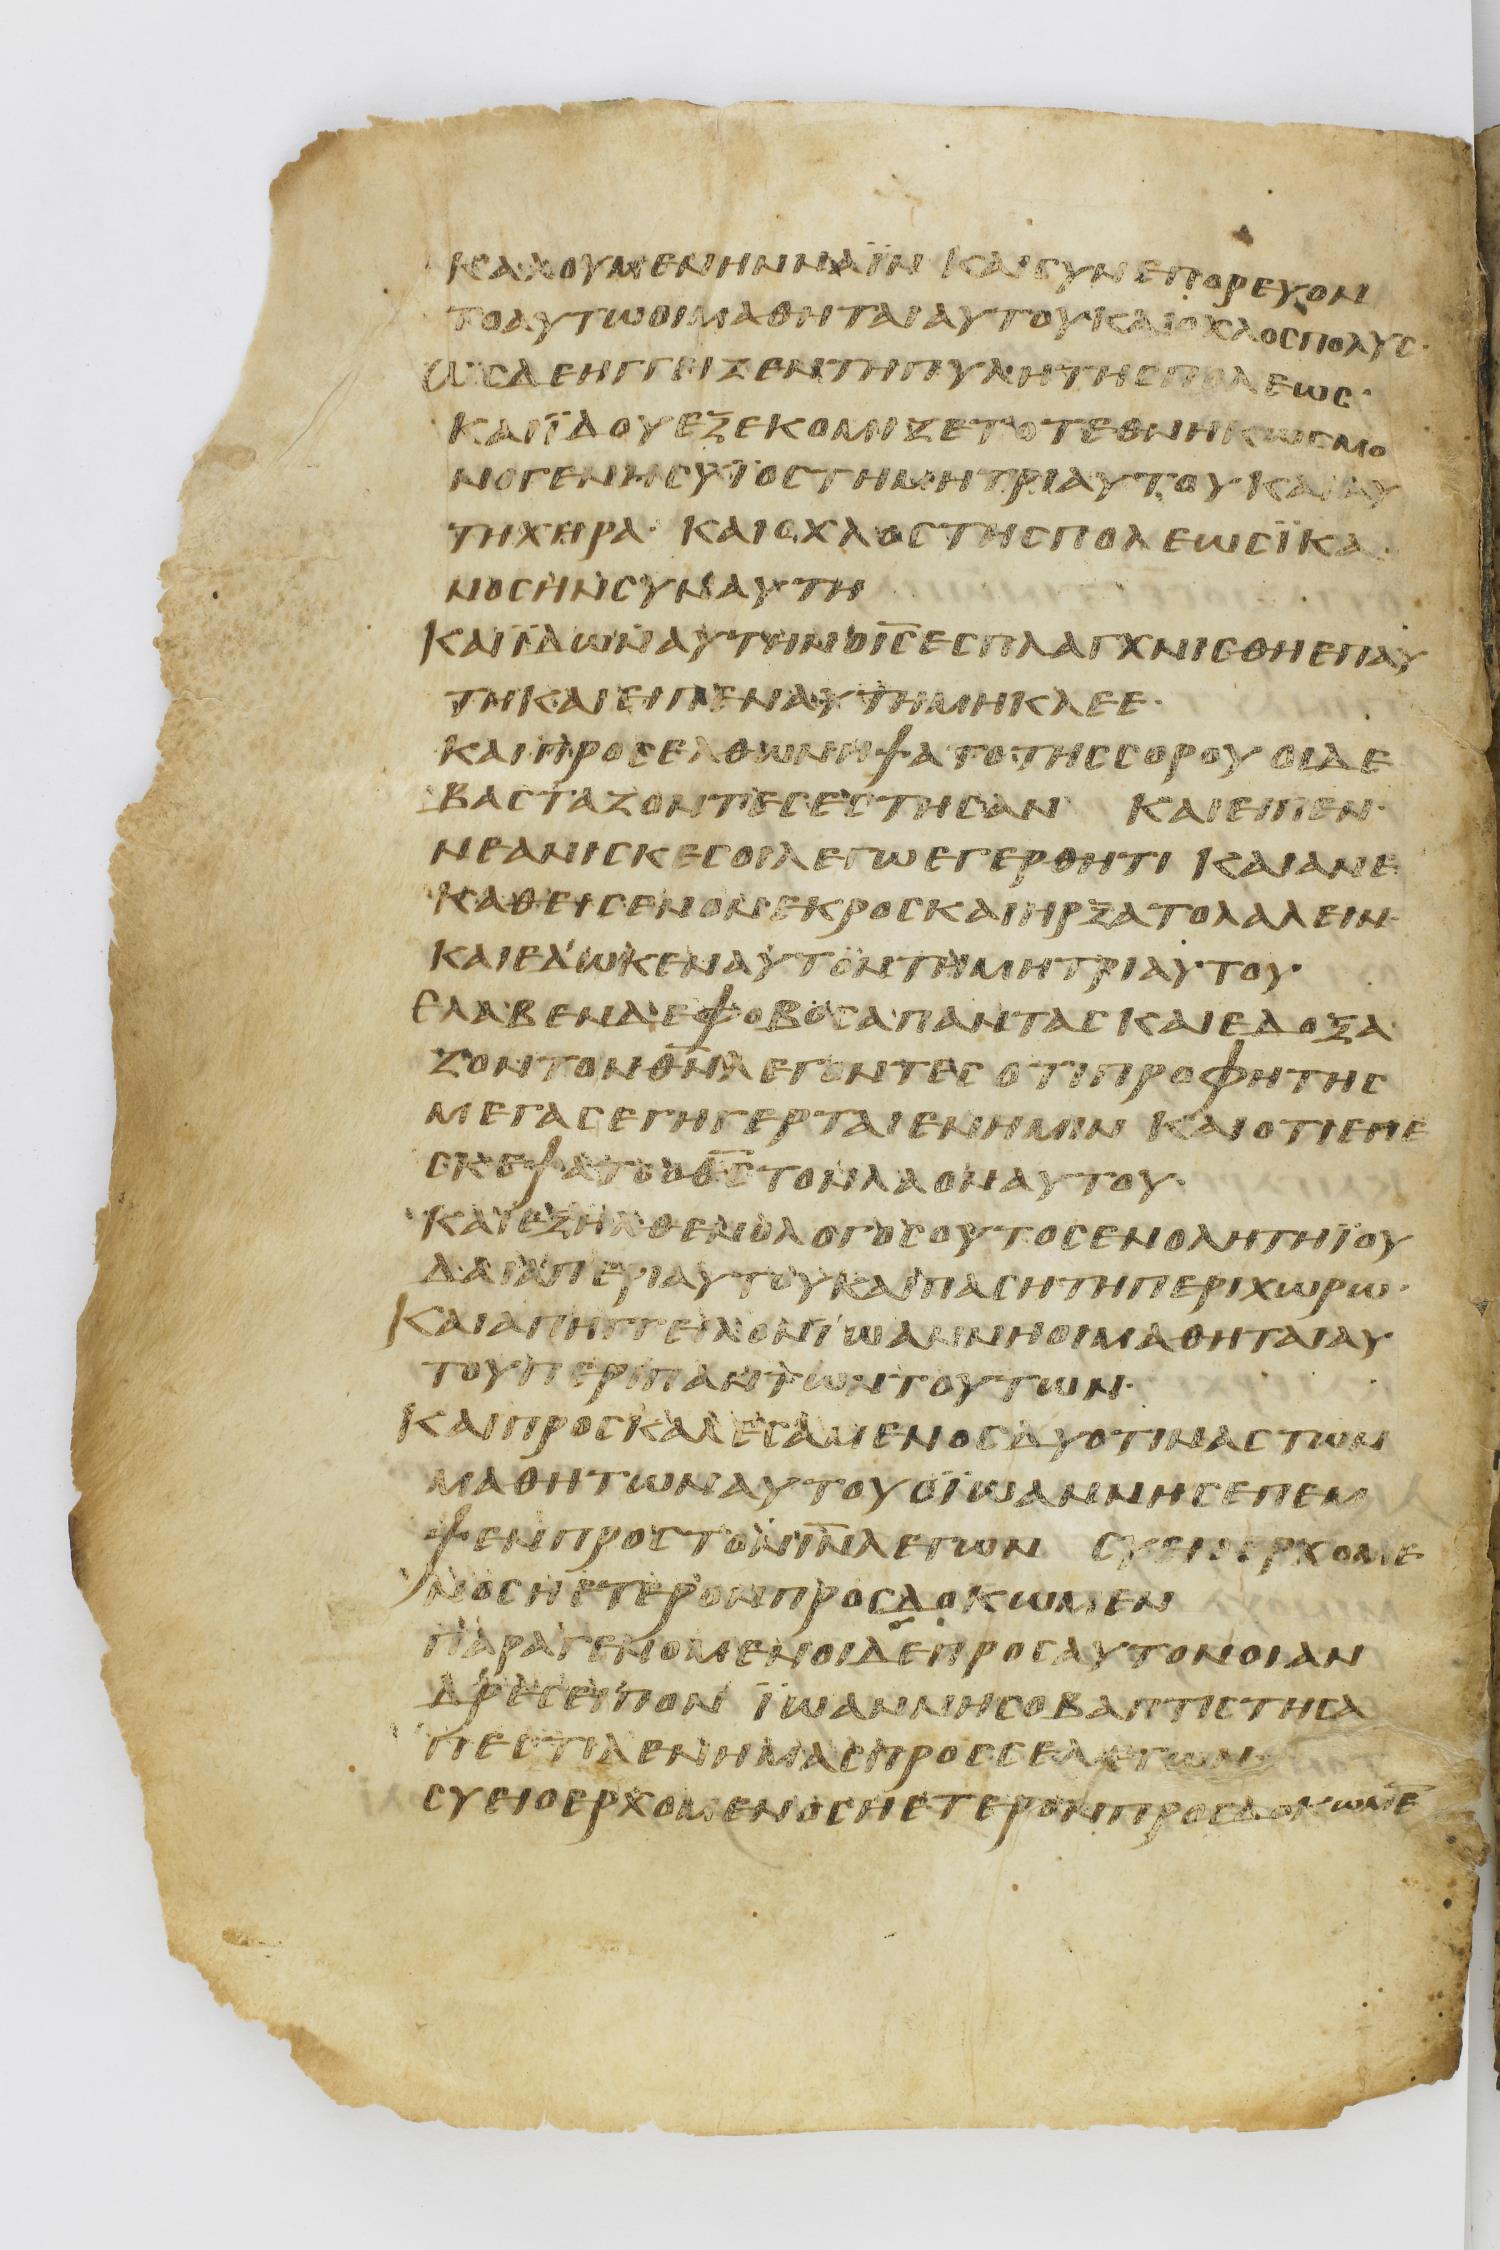 ΚΑΛΟΥΜΕΝΗΝΝΑΪΝ ΚΑΙϹΥΝΕΠΟΡΕΥΟΝ
ΤΟΑΥΤΩΟΙΜΑΘΗΤΑΙΑΥΤΟΥ·ΚΑΙΟΧΛΟϹΠΟΛΥϹ·
ΩϹΔΕΗΓΓΙΖΕΝΤΗΠΥΛΗΤΗϹΠΟΛΕΩϹ·
ΚΑΙΪΔΟΥΕΞΕΚΟΜΙΖΕΤΟΤΕΘΝΗΚΩϹΜΟ
ΝΟΓΕΝΗϹΥΪΟϹΤΗΜΗΤΡΙΑΥΤΟΥΚΑΙΑΥ
ΤΗΧΗΡΑ· ΚΑΙΟΧΛΟϹΤΗϹΠΟΛΕΩϹΪΚΑ
ΝΟϹΗΝϹΥΝΑΥΤΗ
ΚΑΙΪΔΩΝΑΥΤΗΝΟΙ̅Ϲ̅ΕϹΠΛΑΓΧΝΙϹΘΗΕΠΑΥ
ΤΗΚΑΙΕΙΠΕΝΑΥΤΗΜΗΚΛΕΕ·
ΚΑΙΠΡΟϹΕΛΘΩΝΗΨΑΤΟΤΗϹϹΟΡΟΥ ΟΙΔΕ
ΒΑϹΤΑΖΟΝΤΕϹΕϹΤΗϹΑΝ ΚΑΙΕΙΠΕΝ·
ΝΕΑΝΙϹΚΕϹΟΙΛΕΓΩΕΓΕΡΘΗΤΙ ΚΑΙΑΝΕ
ΚΑΘΕΙϹΕΝΟΝΕΚΡΟϹΚΑΙΗΡΞΑΤΟΛΑΛΕΙΝ·
ΚΑΙΕΔΩΚΕΝΑΥΤΟΝΤΗΜΗΤΡΙΑΥΤΟΥ·
ΕΛΑΒΕΝΔΕΦΟΒΟϹΑΠΑΝΤΑϹ ΚΑΙΕΔΟΞΑ
ΖΟΝΤΟΝΘ̅Ν̅ΛΕΓΟΝΤΕϹ ΟΤΙΠΡΟΦΗΤΗϹ
ΜΕΓΑϹΕΓΗΓΕΡΤΑΙΕΝΗΜΙΝ ΚΑΙΟΤΙΕΠΕ
ϹΚΕΨΑΤΟΟΘ̅Ϲ̅ΤΟΝΛΑΟΝΑΥΤΟΥ·
ΚΑΙΕΞΗΛΘΕΝΟΛΟΓΟϹΟΥΤΟϹΕΝΟΛΗΤΗΪΟΥ
ΔΑΙΑΠΕΡΙΑΥΤΟΥΚΑΙΠΑϹΗΤΗΠΕΡΙΧΩΡΩ·
ΚΑΙΑΠΗΓΓΕΙΛΟΝΪΩΑΝΝΗΟΙΜΑΘΗΤΑΙΑΥ
ΤΟΥΠΕΡΙΠΑΝΤΩΝΤΟΥΤΩΝ·
ΚΑΙΠΡΟϹΚΑΛΕϹΑΜΕΝΟϹΔΥΟΤΙΝΑϹΤΩΝ
ΜΑΘΗΤΩΝΑΥΤΟΥΟΪΩΑΝΝΗϹΕΠΕΜ
ΨΕΝΠΡΟϹΤΟΝΙ̅Ν̅ΛΕΓΩΝ ϹΥΕΙΟΕΡΧΟΜΕ
ΝΟϹΗΕΤΕΡΟΝΠΡΟϹΔΟΚΩΜΕΝ
ΠΑΡΑΓΕΝΟΜΕΝΟΙΔΕΠΡΟϹΑΥΤΟΝΟΙΑΝ
ΔΡΕϹΕΙΠΟΝ ΪΩΑΝΝΗϹΟΒΑΠΤΙϹΤΗϹΑ
ΠΕϹΤΙΛΕΝΗΜΑϹΠΡΟϹϹΕΛΕΓΩΝ
ϹΥΕΙΟΕΡΧΟΜΕΝΟϹΗΕΤΕΡΟΝΠΡΟϹΔΟΚΩΜΕ̅